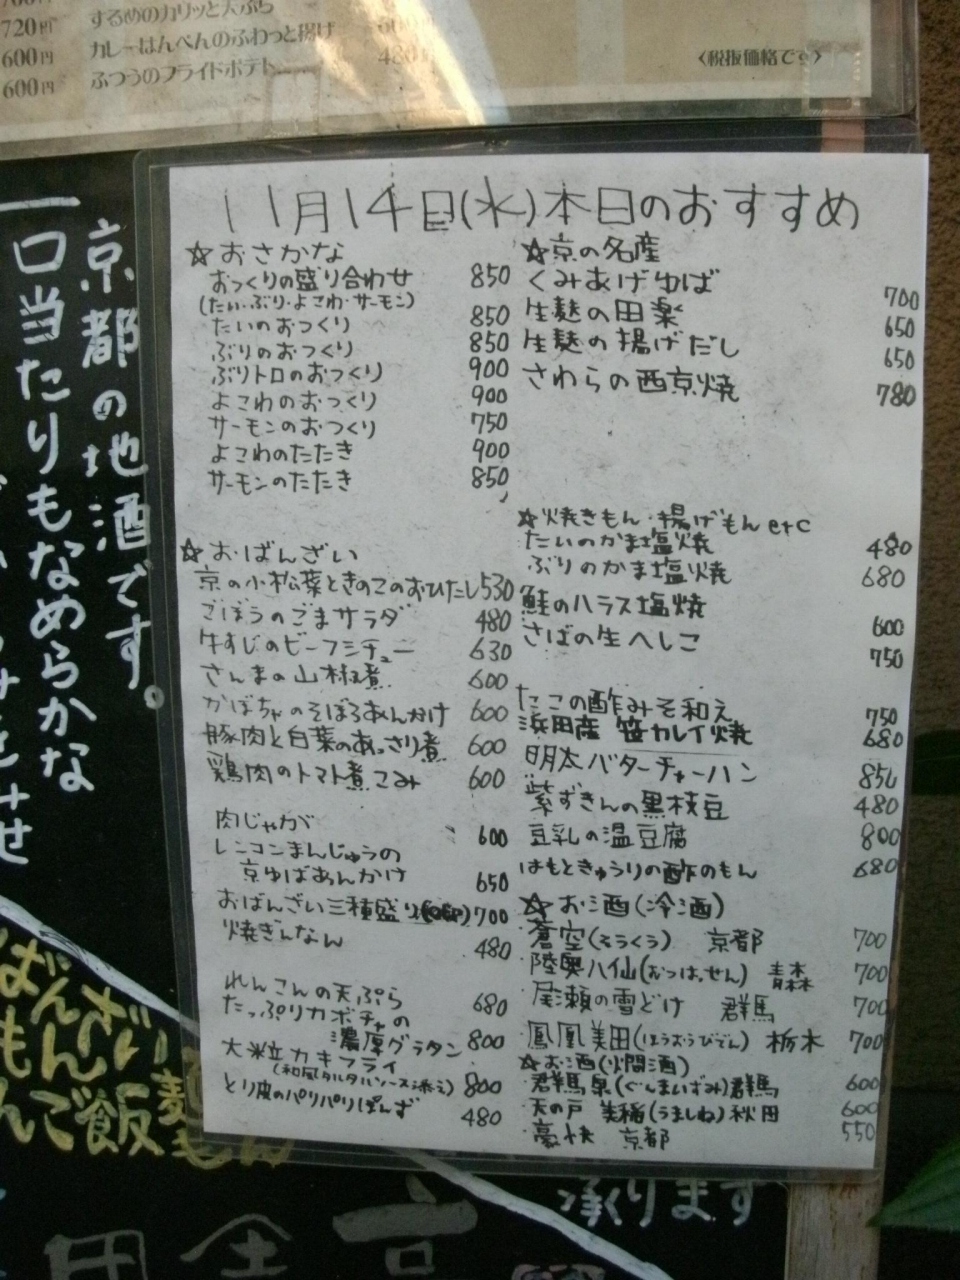 720円 するめのカリッと天ぷら
600円 カレーはんぺんのふわっと揚げ
600円 ふつうのフライドポテト 480円
<税抜価格です>
11月14日(水)本日のおすすめ
☆おさかな
おつくりの盛り合わせ 850
(たい・ぶり・よこわ・サーモン)
たいのおつくり 850
ぶりのおつくり 850
ぶりトロのおつくり 900
よこわのおつくり 900
サーモンのおつくり 750
よこわのたたき 900
サーモンのたたき 850
☆おばんざい
京の小松菜ときのこのおひたし 530
ごぼうのごまサラダ 480
牛すじのビーフシチュー 630
さんまの山椒煮 600
かぼちゃのそぼろあんかけ 600
豚肉と白菜のあっさり煮 600
鶏肉のトマト煮こみ 600
肉じゃが 600
レンコンまんじゅうの
京ゆばあんかけ 650
おばんざい三種盛り 700
焼ぎんなん 480
れんこんの天ぷら 680
たっぷりカボチャの
濃厚グラタン 800
大粒カキフライ
(和風タルタルソース添え) 800
とり皮のパリパリぽんず 480
☆京の名産
くみあげゆば 700
生麩の田楽 650
生麩の揚げだし 650
さわらの西京焼 780
☆焼きもん・揚げもんetc
たいのかま塩焼 480
ぶりのかま塩焼 680
鮭のハラス塩焼 600
さばの生へしこ 750
たこの酢みそ和え 750
浜田産 笹カレイ焼 680
明太バターチャーハン 850
紫ずきんの黒枝豆 480
豆乳の温豆腐 800
はもときゅうりの酢のもん 680
☆お酒(冷酒)
蒼空(そうくう) 京都 700
陸奥八仙(むつはっせん) 青森 700
尾瀬の雪どけ 群馬 700
鳳凰美田(ほうおうびでん) 栃木 700
☆お酒(燗酒)
群馬泉(ぐんまいずみ)群馬 600
天の戸 美稲(うましね)秋田 600
豪快 京都 550
京都の地酒です。
口当たりもなめらかな
ばんざい
もんじい
んご飯麺
承ります